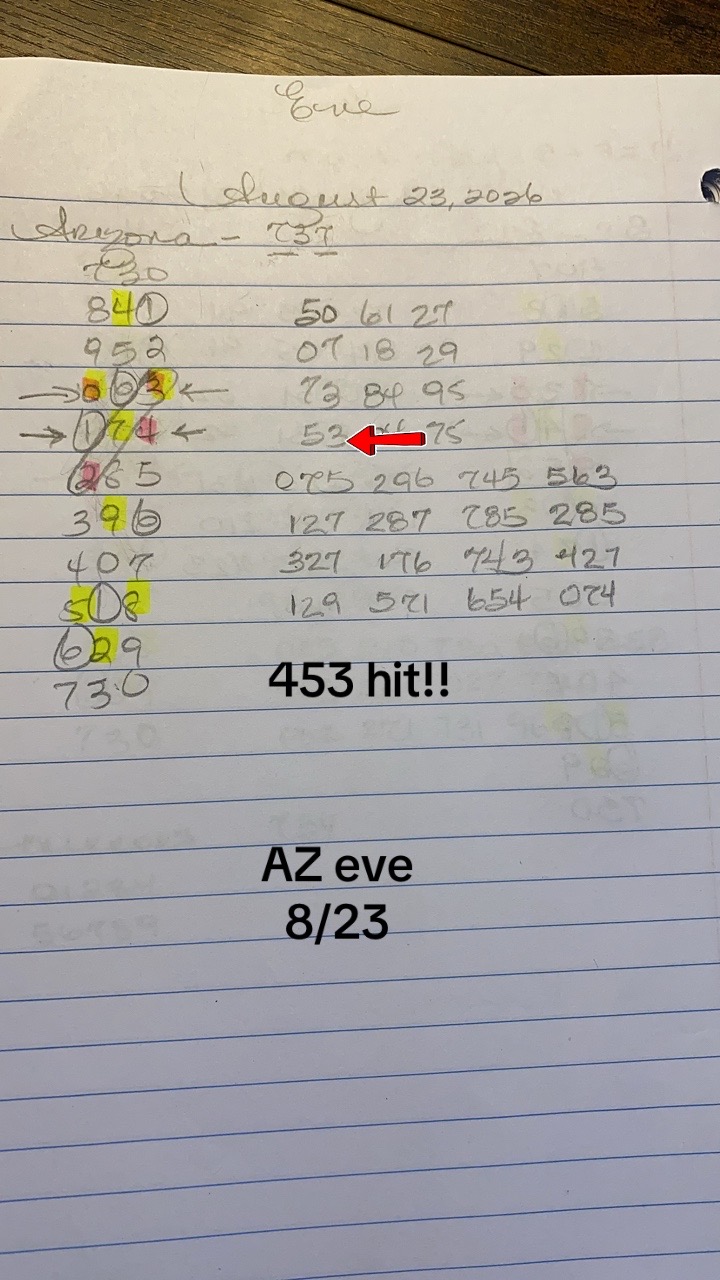 Eve
August 23, 2026
Arizona - 737
730
841 50 61 27
952 07 18 29
063 73 84 95
174 53 75
285 075 296 745 563
396 127 287 785 285
407 327 176 743 427
518 129 571 654 074
629
730
453 hit!!
AZ eve
8/23